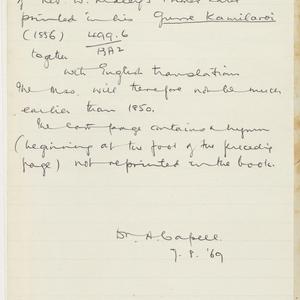 of Rev. W. Ridley's
printed in his Gurre Kamilaroi
(1856) 499.6
RA2
together
with English translation
The Mss. will therefore not be much
earlier than 1850.
The last page contains a hymn
(beginning at the foot of the preceding
page) not reprinted in the book.
Dr. A. Capell.
7.8.'69